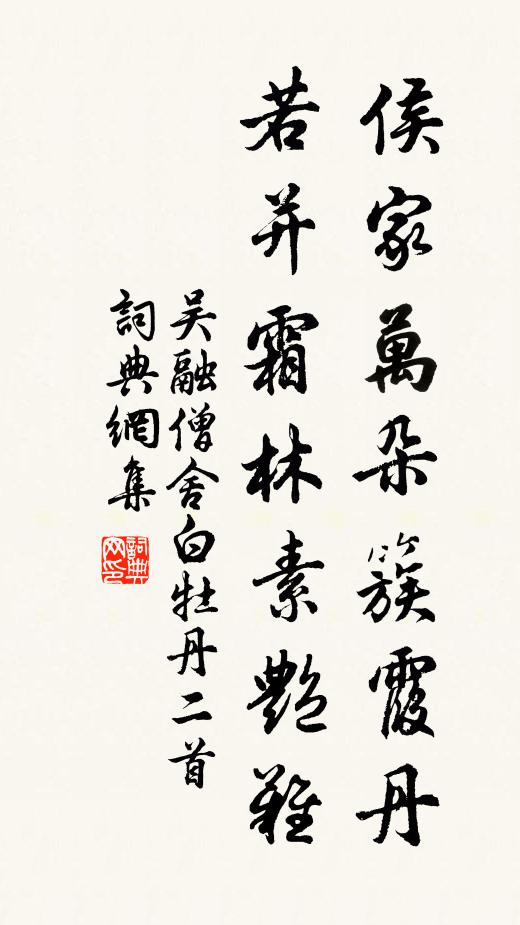 侯家萬朵簇霞丹
若并霜林素艷難
吳融僧舍白牡丹二首
詞典網集
詞典网印